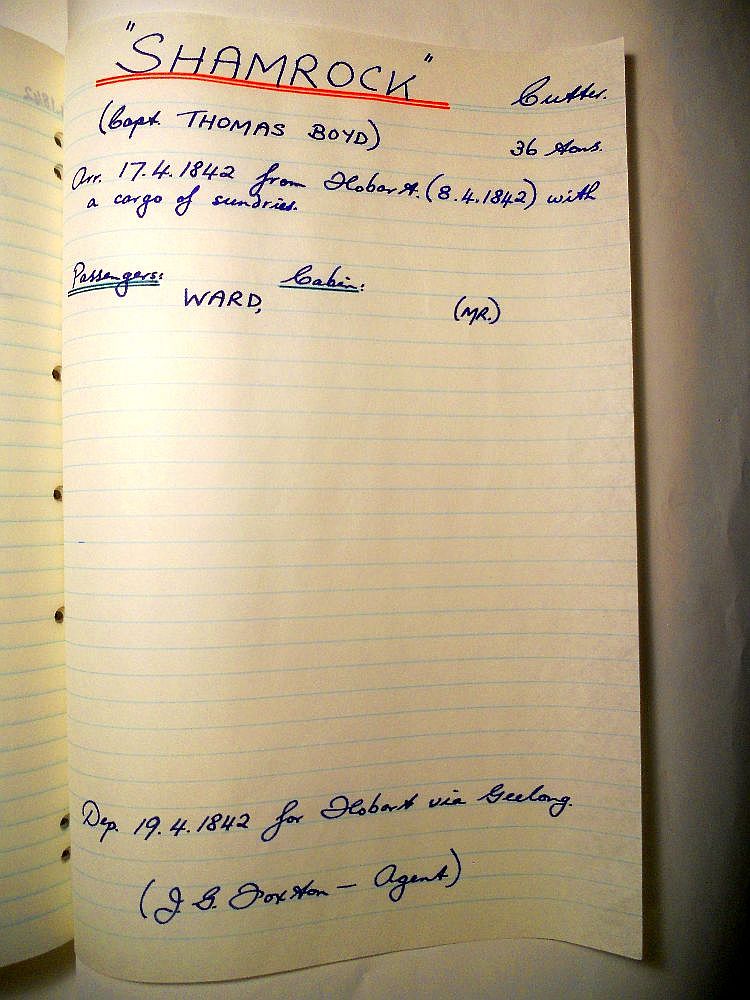 "SHAMROCK"
Cutter.
(Capt. THOMAS BOYD)
36 tons.
Arr. 17.4.1842 from Hobart. (8.4.1842) with
a cargo of sundries.
Passengers: Cabin:
WARD, (MR.)
Dep. 19.4.1842 for Hobart via Geelong.
(J. G. Foxton — Agent)